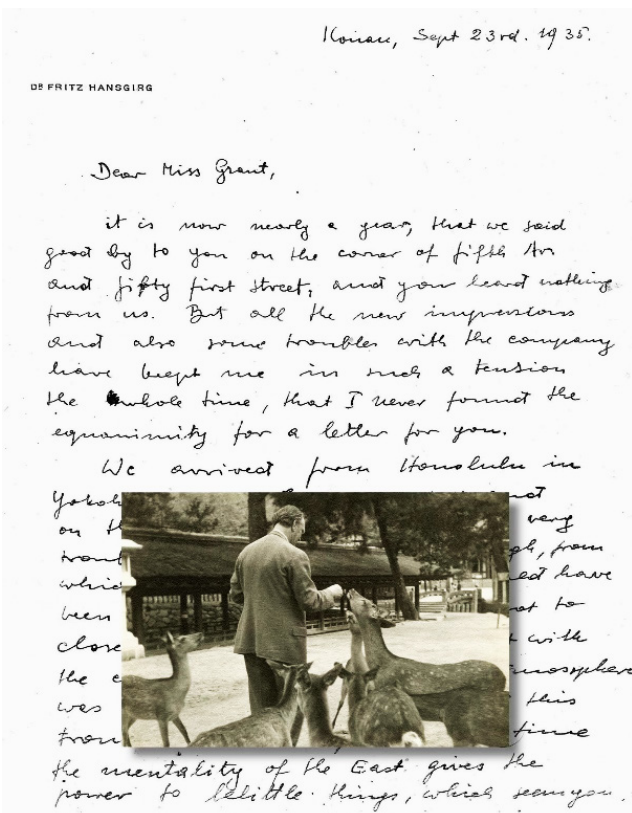 Konan, Sept 23rd. 1935.
DR FRITZ HANSGIRG
Dear Miss Grant,
it is now nearly a year, that we said
good by to you on the corner of fifth Av
and fifty first street, and you heard nothing
from us. But all the new impressions
and also some troubles with the company
have kept me in such a tension
the whole time, that I never found the
equanimity for a letter for you.
We arrived from Honolulu in
on
very
from
have
been to
close with
the
was this
time
the mentality of the East gives the
power to belittle things, which seem you